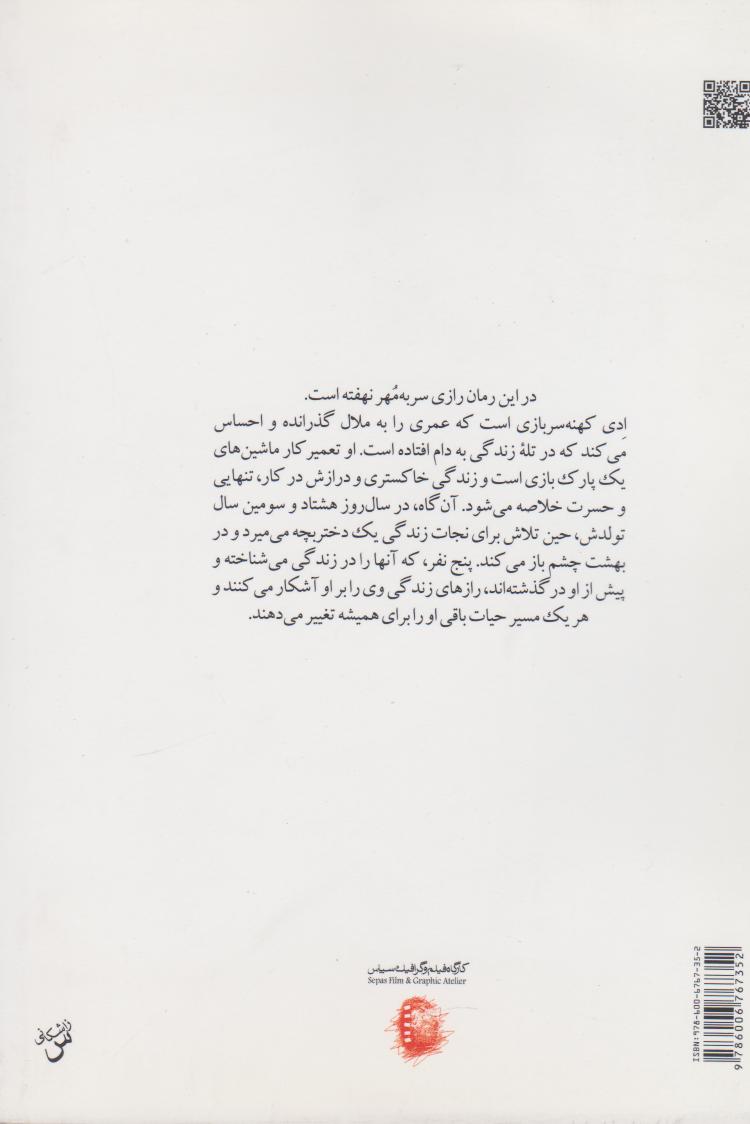 در این رمان رازی سربه‌مُهر نهفته است.
اِدی کهنه‌سربازی است که عمری را به ملال گذرانده و احساس
می‌کند که در تلهٔ زندگی به دام افتاده است. او تعمیرکار ماشین‌های
یک پارک بازی است و زندگی خاکستری و درازش در کار، تنهایی
و حسرت خلاصه می‌شود. آن‌گاه، در سال‌روز هشتاد و سومین سال
تولدش، حین تلاش برای نجات زندگی یک دختربچه می‌میرد و در
بهشت چشم باز می‌کند. پنج نفر، که آنها را در زندگی می‌شناخته و
پیش از او درگذشته‌اند، رازهای زندگی وی را بر او آشکار می‌کنند و
هر یک مسیر حیات باقی او را برای همیشه تغییر می‌دهند.
کارگاه فیلم و گرافیک سپاس
Sepas Film & Graphic Atelier
ISBN: 978-600-6767-35-2
9 786006 767352